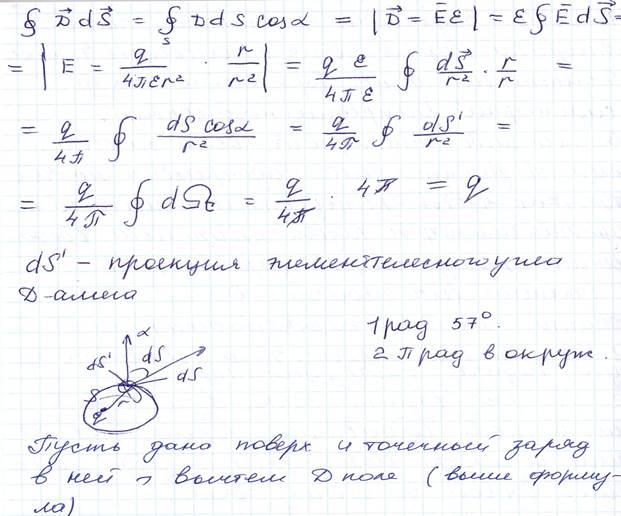 ∮ D⃗ dS⃗ = ∮_S D dS cosα = | D⃗ = E̅ ε | = ε ∮ E̅ dS⃗ =
= | E = q/(4πεr²) · r/r² | = qε/(4πε) ∮ dS⃗/r² · r/r =
= q/4π ∮ dS cosα/r² = q/4π ∮ dS'/r² =
= q/4π ∮ dΩ = q/4π · 4π = q
dS' – проекция элемент телесного угла
D-амега
α
dS' dS
dS
S r
q
1 рад 57°.
2π рад в окруж.
Пусть дано поверх и точечный заряд
в ней → D поле (выше форму-
ла)